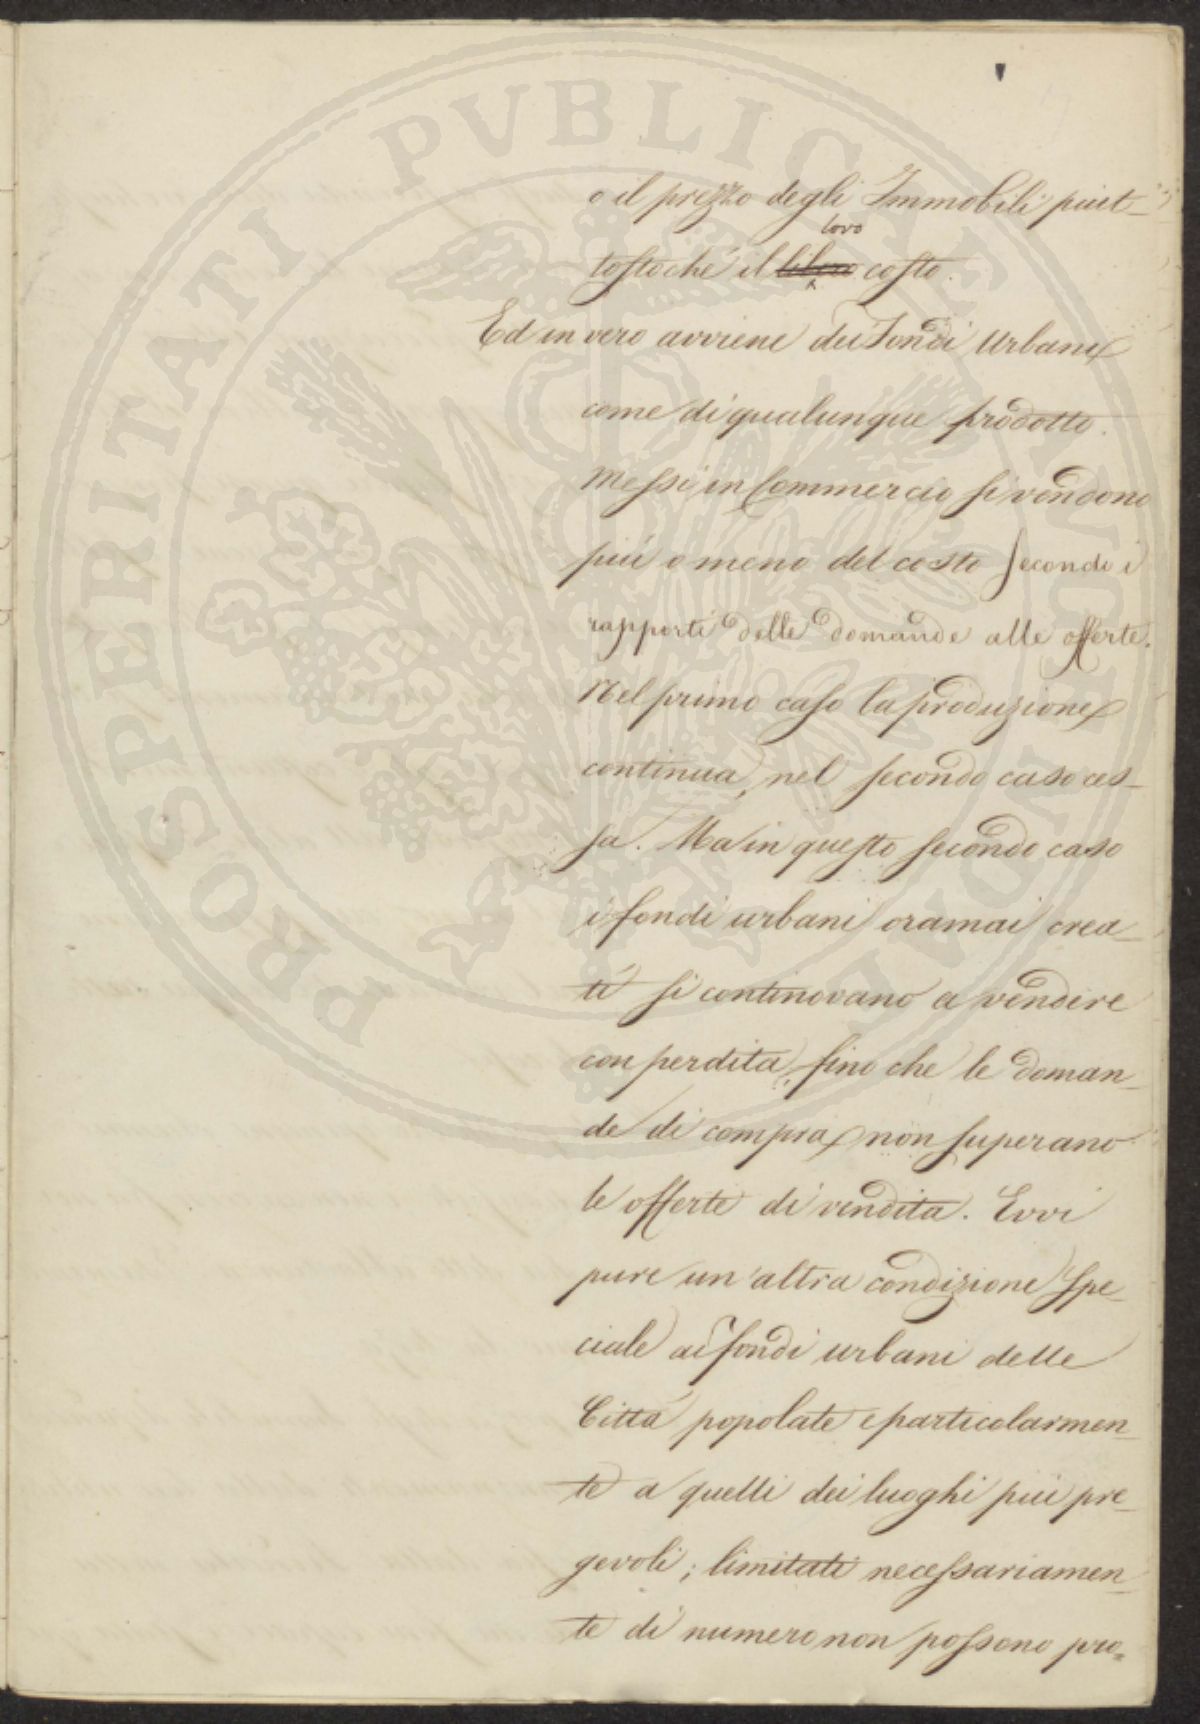 o il prezzo degli Immobili piut-
tostoché il libero loro costo.
Ed in vero avviene dei Fondi Urbani
come di qualunque prodotto.
Messi in Commercio si vendono
più o meno del costo secondo i
rapporti delle domande alle offerte.
Nel primo caso la produzione
continua, nel secondo caso ces-
sa. Ma in questo secondo caso
i fondi urbani oramai crea-
ti si continovano a vendere
con perdita, fino che le doman-
de di compra non superano
le offerte di vendita. Evvi
pure un'altra condizione spe-
ciale ai fondi urbani delle
Città popolate e particolarmen-
te a quelli dei luoghi più pre-
gevoli; limitati necessariamen-
te di numero non possono pro-
PROSPERITATI PVBLICAE AVGENDAE